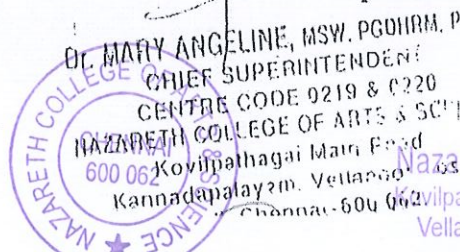 Dr. MARY ANGELINE, MSW, PGDHRM, P
CHIEF SUPERINTENDENT
CENTRE CODE 0219 & 0220
NAZARETH COLLEGE OF ARTS & SCI
Kovilpathagai Main Road
Kannadapalayam, Vellanoor
Chennai-600 062
NAZARETH COLLEGE OF ARTS & SCIENCE
CHENNAI
600 062
Naza
Kovilpa
Vella